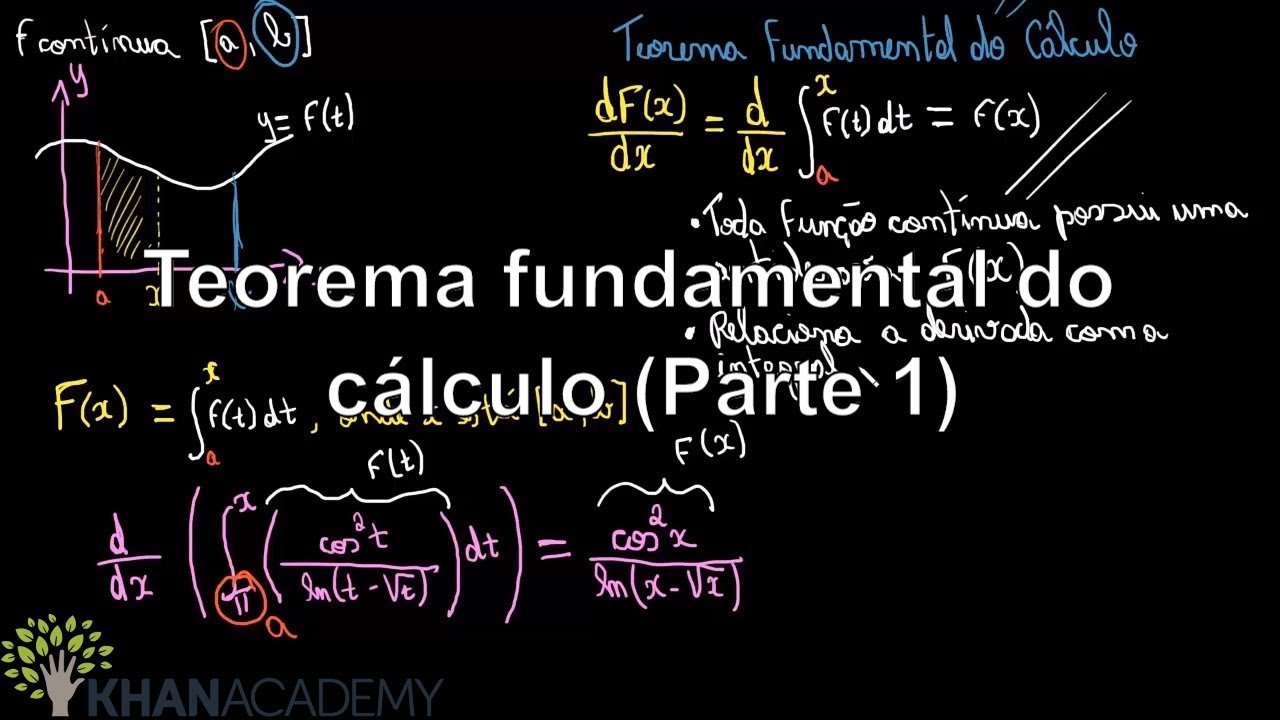 f contínua [a, b]
Teorema Fundamental do Cálculo
y
y = f(t)
dF(x)/dx = d/dx ∫ₐˣ f(t) dt = f(x)
• Toda função contínua possui uma
F(x)
a x
• Relaciona a derivada com a
integral
Teorema fundamental do
cálculo (Parte 1)
F(x) = ∫ₐˣ f(t) dt, onde x está [a, b]
f(t)
f(x)
d/dx (∫_π^x (cos² t / ln(t - √t)) dt) = cos² x / ln(x - √x)
a
KHANACADEMY